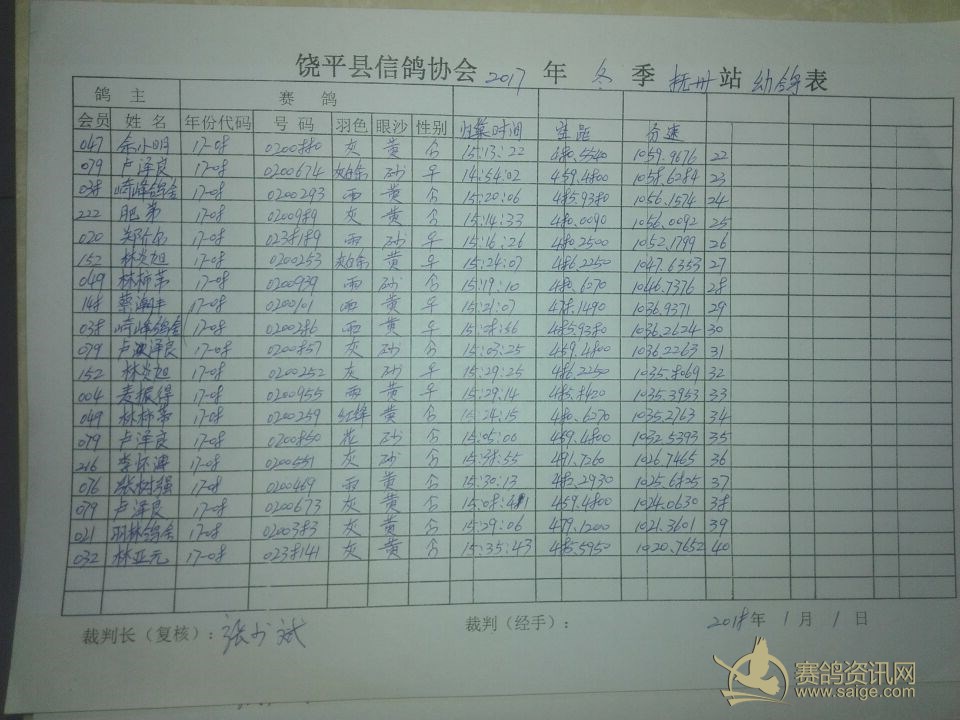 饶平县信鸽协会 2017 年 冬 季 抚州 站 幼鸽 表
鸽 主 赛 鸽
会员 姓名 年份代码 号码 羽色 眼沙 性别 归巢时间 空距 分速
047 余小明 17-08 0200880 灰 黄 合 15:13:22 480.5540 1059.9676 22
079 卢泽良 17-08 0200674 沙 早 14:54:02 459.4800 1058.6284 23
038 崎峰鸽舍 17-08 0200293 雨 黄 合 15:20:06 485.9380 1056.1574 24
222 肥弟 17-08 0200989 灰 黄 合 15:14:33 480.0090 1056.0092 25
020 17-08 0238189 雨 沙 早 15:16:26 480.2500 1052.1799 26
152 林炎旭 17-08 0200253 黄 早 15:24:07 486.2250 1047.6353 27
049 林柿第 17-08 0200939 雨 沙 合 15:19:10 480.6270 1046.7376 28
148 蔡潮丰 17-08 0200101 雨 黄 早 15:21:07 478.1490 1036.9371 29
038 崎峰鸽舍 17-08 0200286 雨 黄 合 15:08:56 485.9380 1036.2624 30
079 卢泽良 17-08 0200857 灰 沙 合 15:03:25 459.4800 1036.2263 31
152 林炎旭 17-08 0200252 灰 沙 早 15:29:25 486.2250 1035.8069 32
004 麦振得 17-08 0200955 雨 黄 早 15:29:14 485.8420 1035.3953 33
049 林柿第 17-08 0200259 红绛 黄 合 15:24:15 480.6270 1035.2763 34
079 卢泽良 17-08 0200850 花 沙 合 15:05:00 459.4800 1032.5393 35
216 李怀涛 17-08 0200551 灰 沙 合 15:38:55 491.7260 1026.7465 36
076 张树强 17-08 0200469 雨 黄 合 15:30:13 485.2930 1025.6825 37
079 卢泽良 17-08 0200673 灰 黄 合 15:08:41 459.4800 1024.0630 38
021 羽林鸽舍 17-08 0200383 灰 黄 合 15:29:06 479.1200 1021.3601 39
032 林亚元 17-08 0238141 灰 黄 合 15:35:43 485.5950 1020.7652 40
裁判长（复核）：张少斌 裁判（经手）： 2018 年 1 月 1 日
赛鸽资讯网
www.saige.com